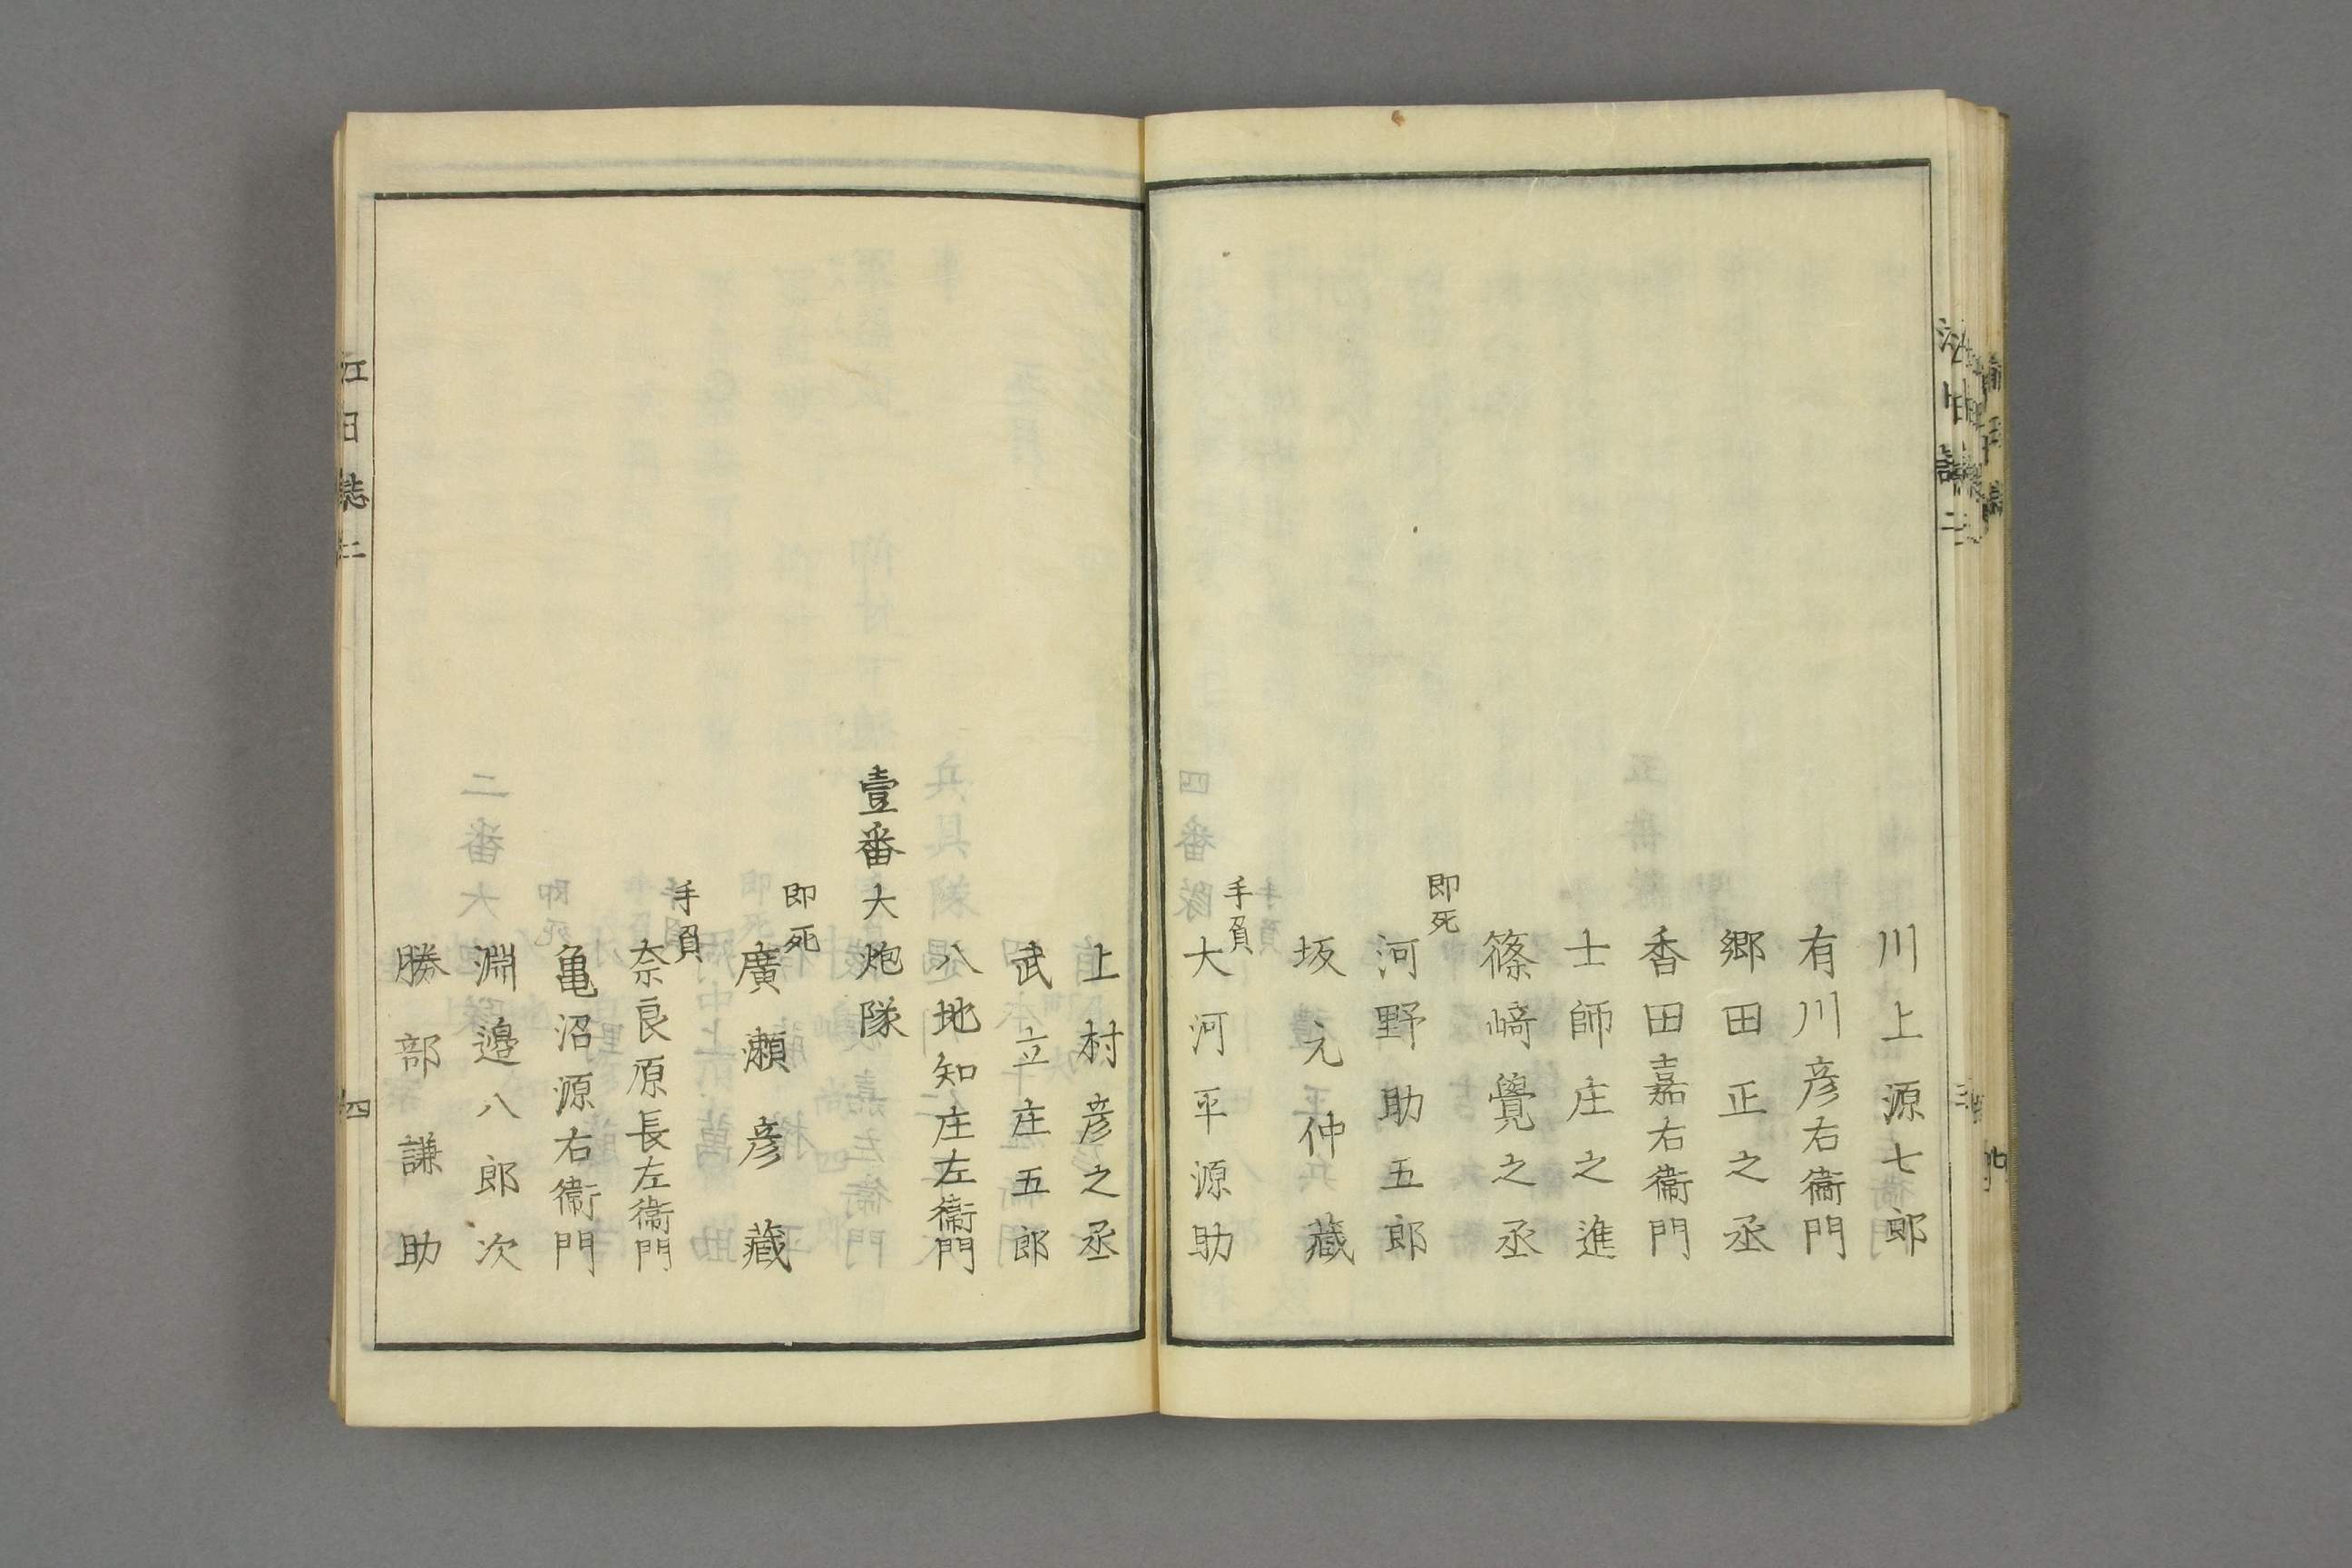 川上源七郎
有川彦右衞門
郷田正之丞
香田嘉右衞門
士師庄之進
篠﨑覺之丞
即死
河野助五郎
坂元仲藏
手負
大河平源助
上村彦之丞
武立庄五郎
八地知庄左衞門
壹番大炮隊
即死
廣瀬彦藏
手負
奈良原長左衞門
亀沼源右衞門
淵邉八郎次
勝部謙助
江日誌二
四